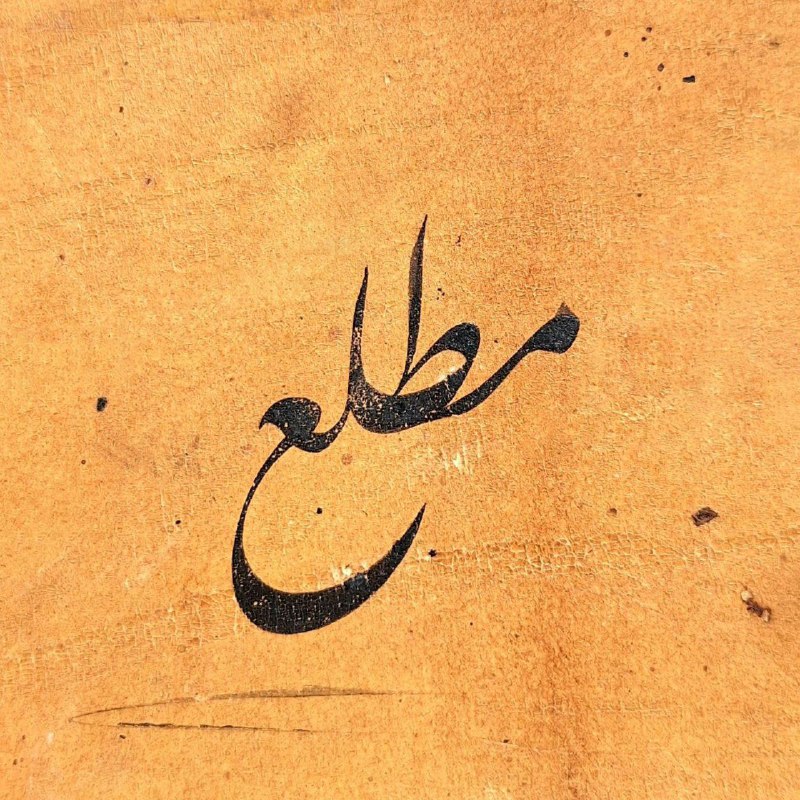 مطلع